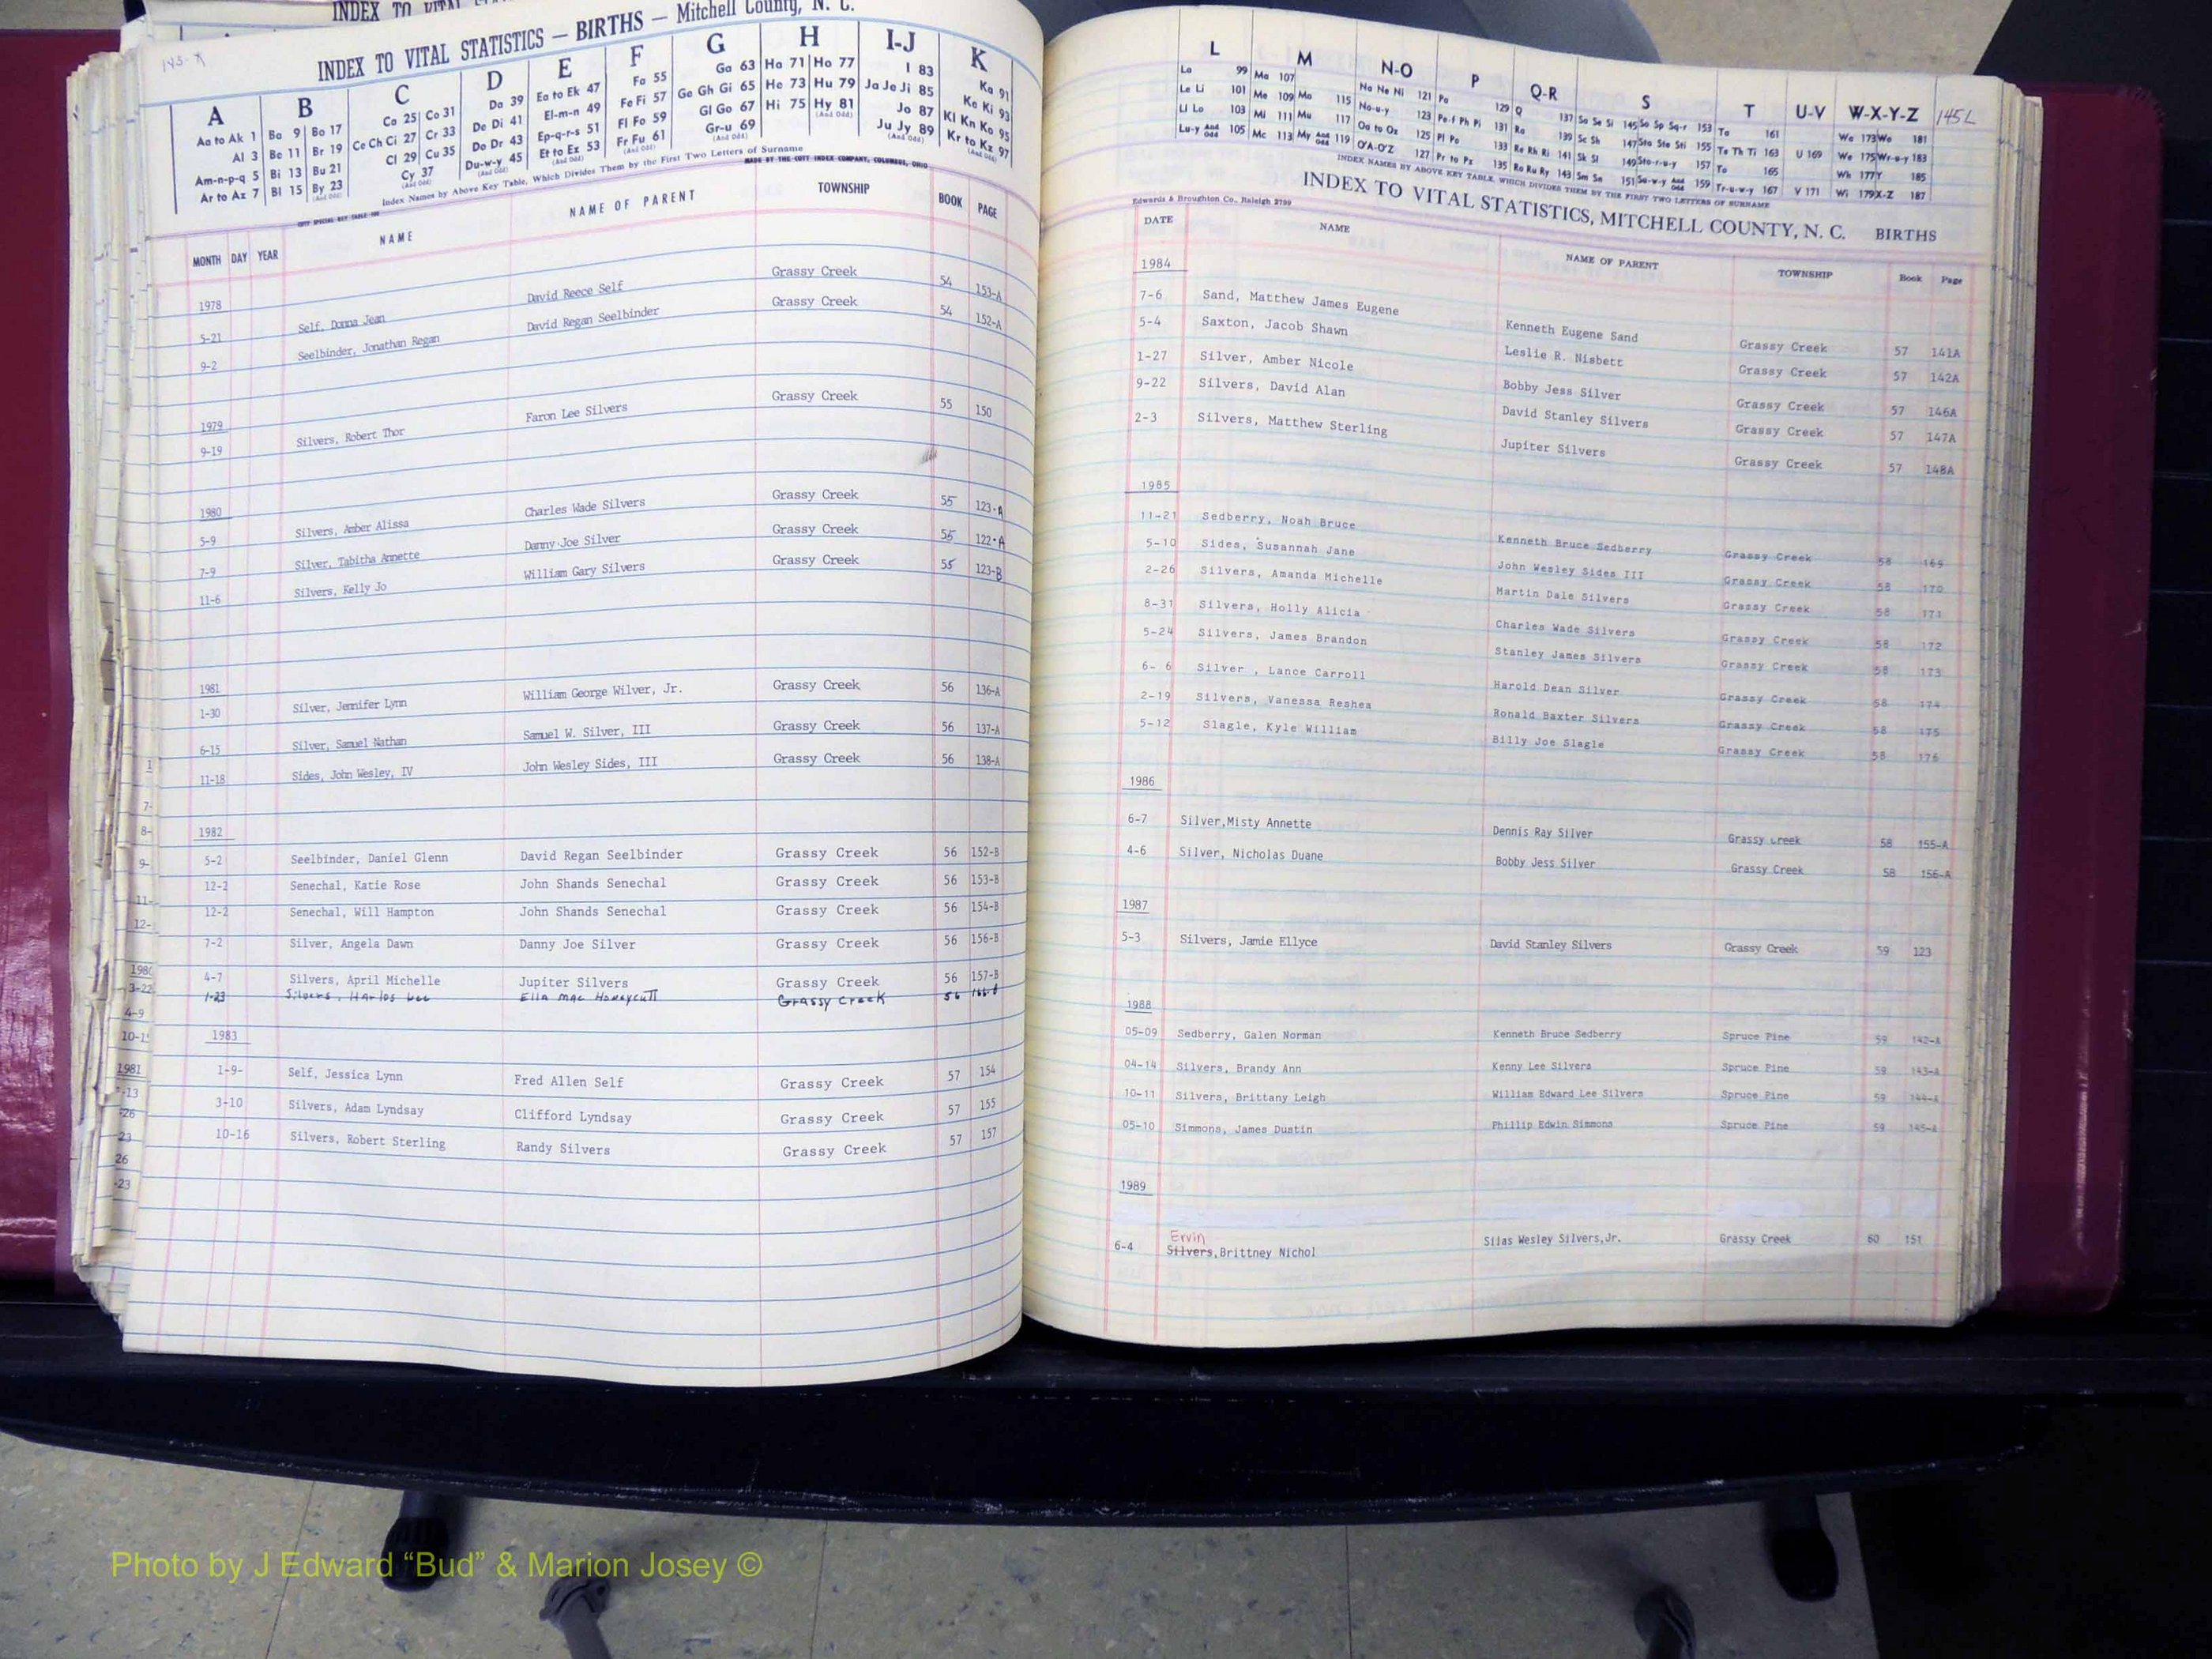 INDEX TO VITAL
145-A
INDEX TO VITAL STATISTICS — BIRTHS — Mitchell County, N. C.
A B C D E F G H I-J K
Aa to Ak 1 Ba 9 Bo 17 Ca 25 Co 31 Da 39 Ea to Ek 47 Fa 55 Ga 63 Ha 71 Ho 77 I 83 Ka 91
Al 3 Be 11 Br 19 Ce Ch Ci 27 Cr 33 De Di 41 El-m-n 49 Fe Fi 57 Ge Gh Gi 65 He 73 Hu 79 Ja Je Ji 85 Ke Ki 93
Am-n-p-q 5 Bi 13 Bu 21 Cl 29 Cu 35 Do Dr 43 Ep-q-r-s 51 Fl Fo 59 Gl Go 67 Hi 75 Hy 81 (And Odd) Jo 87 Kl Kn Ko 95
Ar to Az 7 Bl 15 By 23 (And Odd) Cy 37 (And Odd) Du-w-y 45 (And Odd) Et to Ez 53 (And Odd) Fr Fu 61 (And Odd) Gr-u 69 (And Odd) Ju Jy 89 (And Odd) Kr to Kz 97 (And Odd)
Index Names by Above Key Table, Which Divides Them by the First Two Letters of Surname
MADE BY THE COTT INDEX COMPANY, COLUMBUS, OHIO
MONTH DAY YEAR NAME NAME OF PARENT TOWNSHIP BOOK PAGE
1978
5-21 Self, Donna Jean David Reece Self Grassy Creek 54 153-A
9-2 Seelbinder, Jonathan Regan David Regan Seelbinder Grassy Creek 54 152-A
1979
9-19 Silvers, Robert Thor Faron Lee Silvers Grassy Creek 55 150
1980
5-9 Silvers, Amber Alissa Charles Wade Silvers Grassy Creek 55 123-A
7-9 Silver, Tabitha Annette Danny Joe Silver Grassy Creek 55 122-A
11-6 Silvers, Kelly Jo William Gary Silvers Grassy Creek 55 123-B
1981
1-30 Silver, Jennifer Lynn William George Wilver, Jr. Grassy Creek 56 136-A
6-15 Silver, Samuel Nathan Samuel W. Silver, III Grassy Creek 56 137-A
11-18 Sides, John Wesley, IV John Wesley Sides, III Grassy Creek 56 138-A
1982
5-2 Seelbinder, Daniel Glenn David Regan Seelbinder Grassy Creek 56 152-B
12-2 Senechal, Katie Rose John Shands Senechal Grassy Creek 56 153-B
12-2 Senechal, Will Hampton John Shands Senechal Grassy Creek 56 154-B
7-2 Silver, Angela Dawn Danny Joe Silver Grassy Creek 56 156-B
4-7 Silvers, April Michelle Jupiter Silvers Grassy Creek 56 157-B
1-23 Silvers, Harlos Lee Ella Mae Honeycutt Grassy Creek 56
1983
1-9- Self, Jessica Lynn Fred Allen Self Grassy Creek 57 154
3-10 Silvers, Adam Lyndsay Clifford Lyndsay Grassy Creek 57 155
10-16 Silvers, Robert Sterling Randy Silvers Grassy Creek 57 157
1
7-
8-
9-
11-
12-
3-22
4-9
1981
-13
-26
23
26
-23
L M N-O P Q-R S T U-V W-X-Y-Z 145L
La 99 Ma 107 Na Ne Ni 121 Pa 129 Q 137 Sa Se Si 145 So Sp Sq-r 153 Ta 161 Wa 173 Wo 181
Le Li 101 Me 109 Mo 115 No-u-y 123 Pe-f Ph Pi 131 Ra 139 Sc Sh 147 Sta Ste Sti 155 Te Th Ti 163 U 169 We 175 Wr-u-y 183
Ll Lo 103 Mi 111 Mu 117 Oa to Oz 125 Pl Po 133 Re Rh Ri 141 Sk Sl 149 Sto-r-u-y 157 To 165 Wh 177 Y 185
Lu-y And Odd 105 Mc 113 My And Odd 119 O'A-O'Z 127 Pr to Pz 135 Ro Ru Ry 143 Sm Sn 151 Su-w-y And Odd 159 Tr-u-w-y 167 V 171 Wi 179 X-Z 187
INDEX NAMES BY ABOVE KEY TABLE, WHICH DIVIDES THEM BY THE FIRST TWO LETTERS OF SURNAME
Edwards & Broughton Co., Raleigh 2799
INDEX TO VITAL STATISTICS, MITCHELL COUNTY, N. C. BIRTHS
DATE NAME NAME OF PARENT TOWNSHIP Book Page
1984
7-6 Sand, Matthew James Eugene Kenneth Eugene Sand Grassy Creek 57 141A
5-4 Saxton, Jacob Shawn Leslie R. Nisbett Grassy Creek 57 142A
1-27 Silver, Amber Nicole Bobby Jess Silver Grassy Creek 57 146A
9-22 Silvers, David Alan David Stanley Silvers Grassy Creek 57 147A
2-3 Silvers, Matthew Sterling Jupiter Silvers Grassy Creek 57 148A
1985
11-21 Sedberry, Noah Bruce Kenneth Bruce Sedberry Grassy Creek 58 169
5-10 Sides, Susannah Jane John Wesley Sides III Grassy Creek 58 170
2-26 Silvers, Amanda Michelle Martin Dale Silvers Grassy Creek 58 171
8-31 Silvers, Holly Alicia Charles Wade Silvers Grassy Creek 58 172
5-24 Silvers, James Brandon Stanley James Silvers Grassy Creek 58 173
6- 6 Silver , Lance Carroll Harold Dean Silver Grassy Creek 58 174
2-19 Silvers, Vanessa Reshea Ronald Baxter Silvers Grassy Creek 58 175
5-12 Slagle, Kyle William Billy Joe Slagle Grassy Creek 58 176
1986
6-7 Silver,Misty Annette Dennis Ray Silver Grassy Creek 58 155-A
4-6 Silver, Nicholas Duane Bobby Jess Silver Grassy Creek 58 156-A
1987
5-3 Silvers, Jamie Ellyce David Stanley Silvers Grassy Creek 59 123
1988
05-09 Sedberry, Galen Norman Kenneth Bruce Sedberry Spruce Pine 59 142-A
04-14 Silvers, Brandy Ann Kenny Lee Silvers Spruce Pine 59 143-A
10-11 Silvers, Brittany Leigh William Edward Lee Silvers Spruce Pine 59 144-A
05-10 Simmons, James Dustin Phillip Edwin Simmons Spruce Pine 59 145-A
1989
Ervin
6-4 Silvers,Brittney Nichol Silas Wesley Silvers,Jr. Grassy Creek 60 151
Photo by J Edward “Bud” & Marion Josey ©